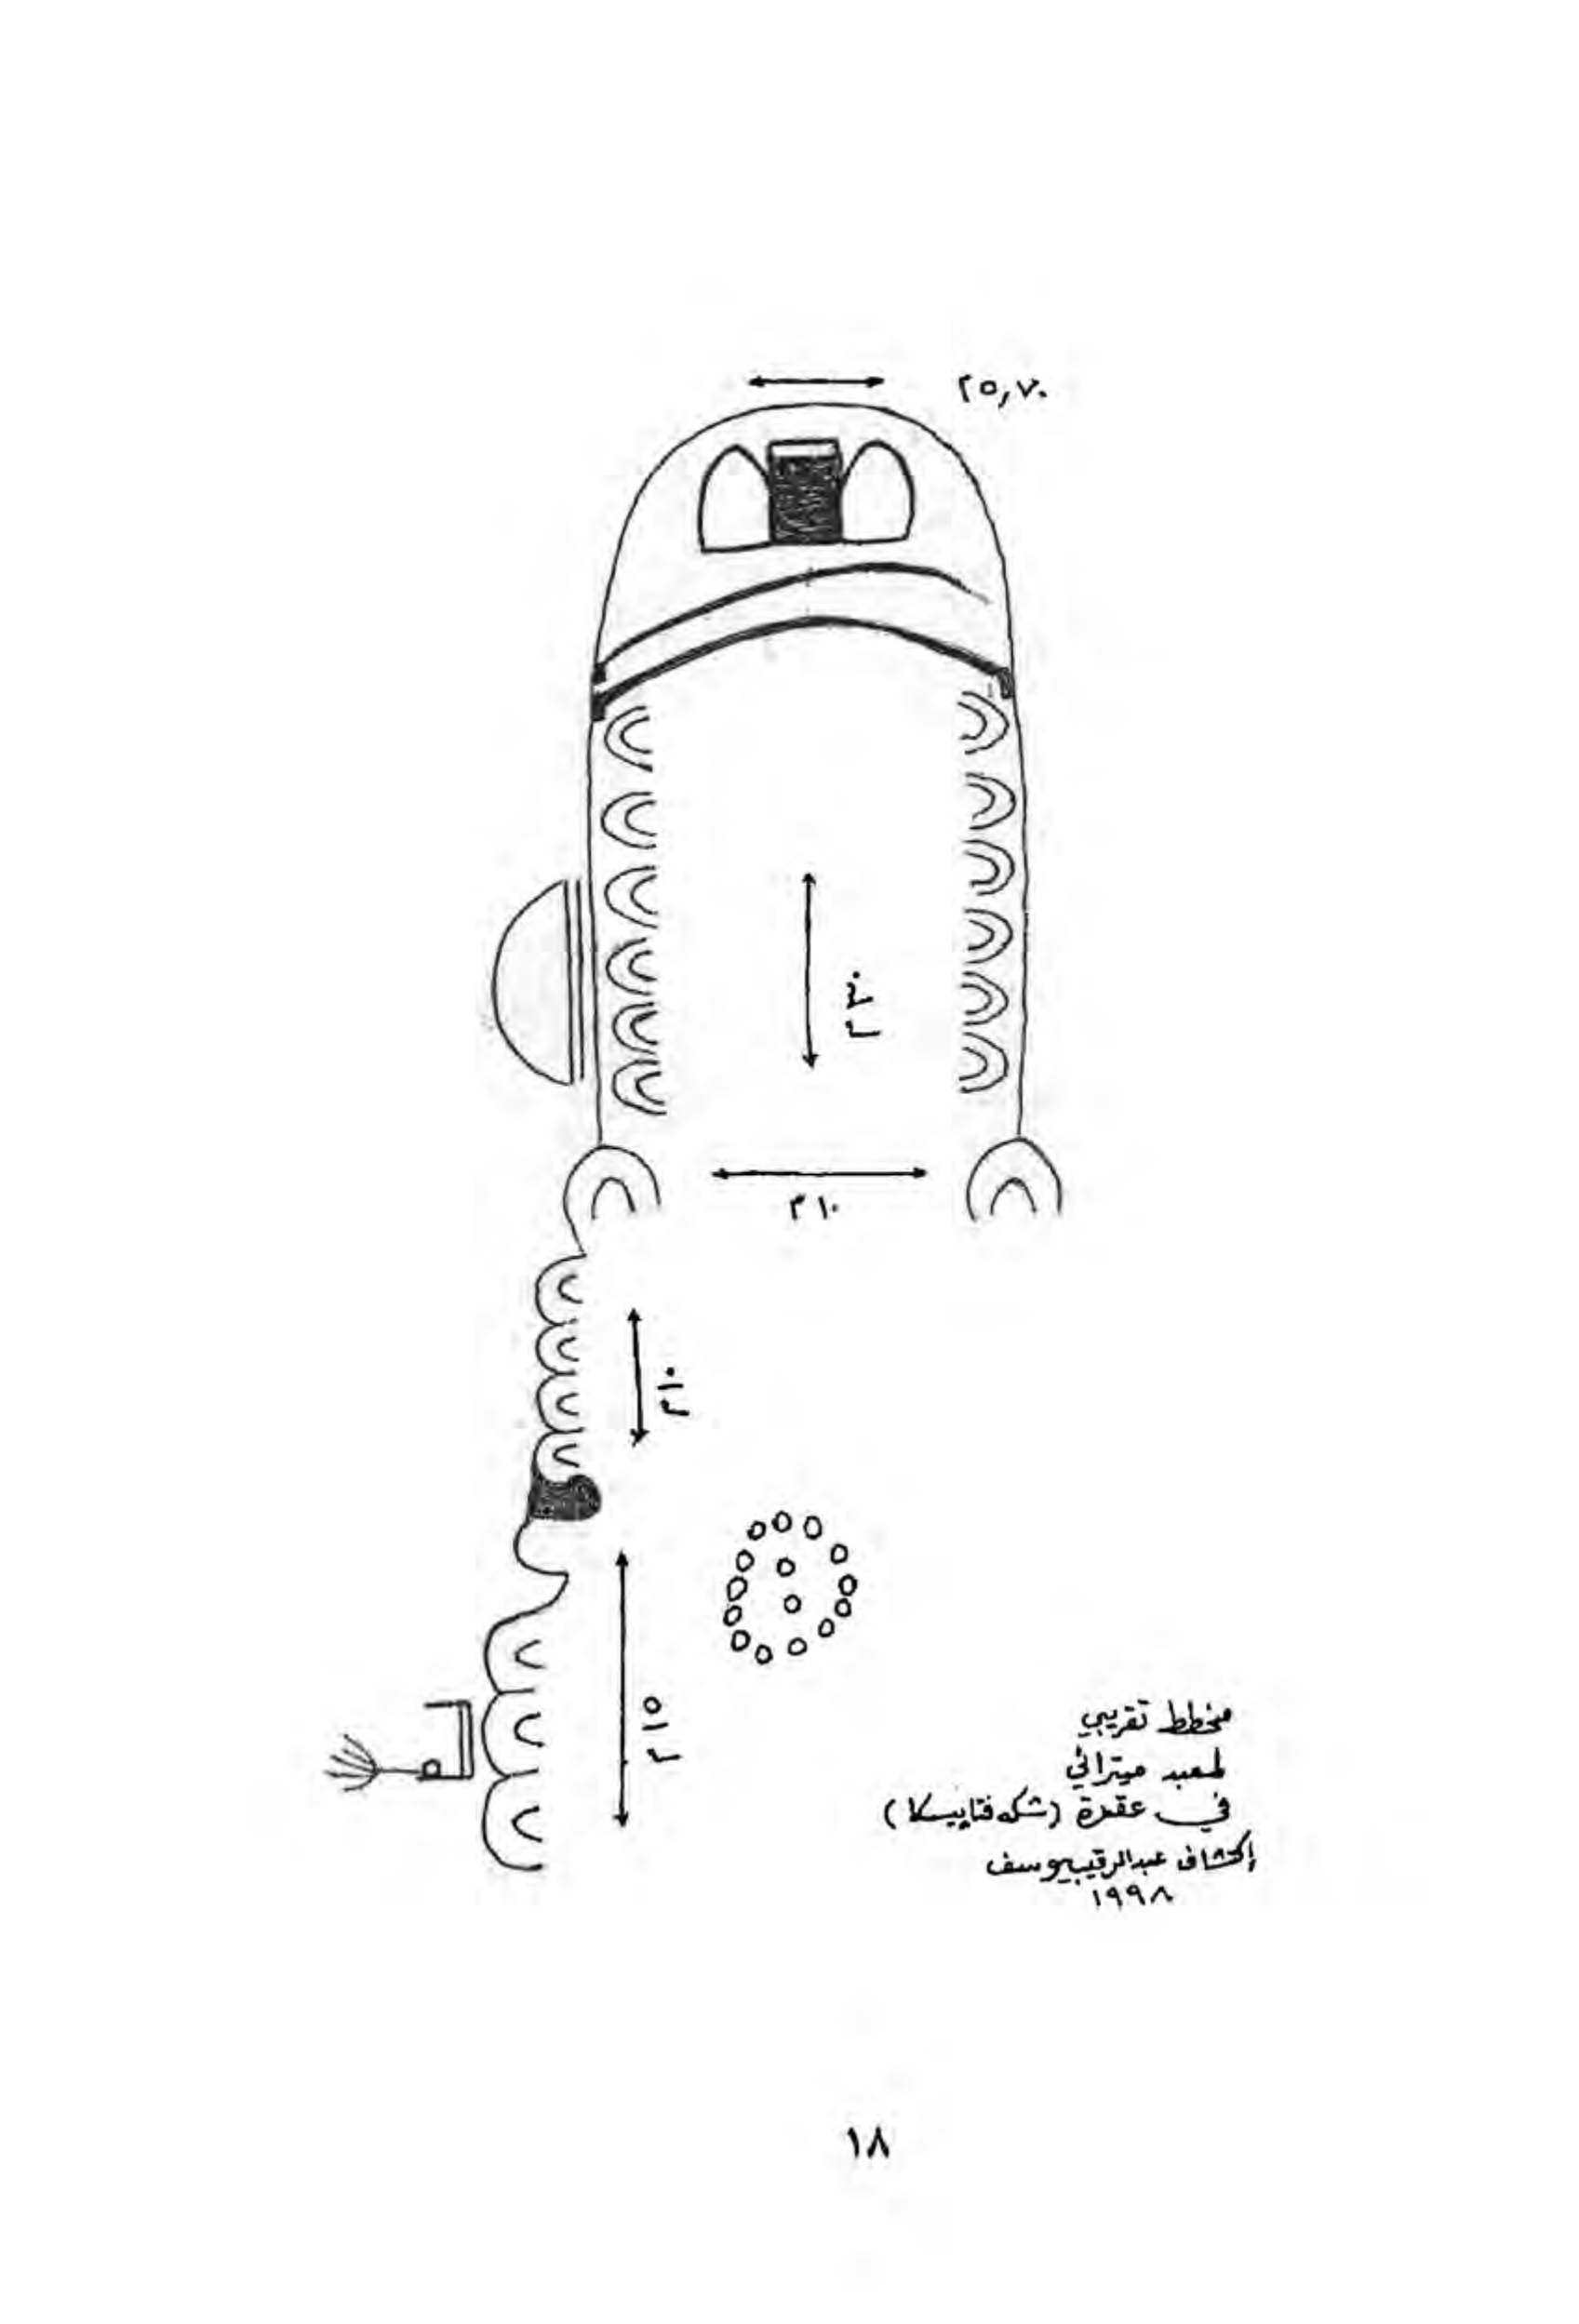 ٥,٧٠م
٣٠م
١٠م
١٠م
١٥م
مخطط تقريبي
لمعبد ميترائي
في عقرة (شكه فتاييسكا)
إكتشاف عبدالرقيب يوسف
١٩٩٨
١٨